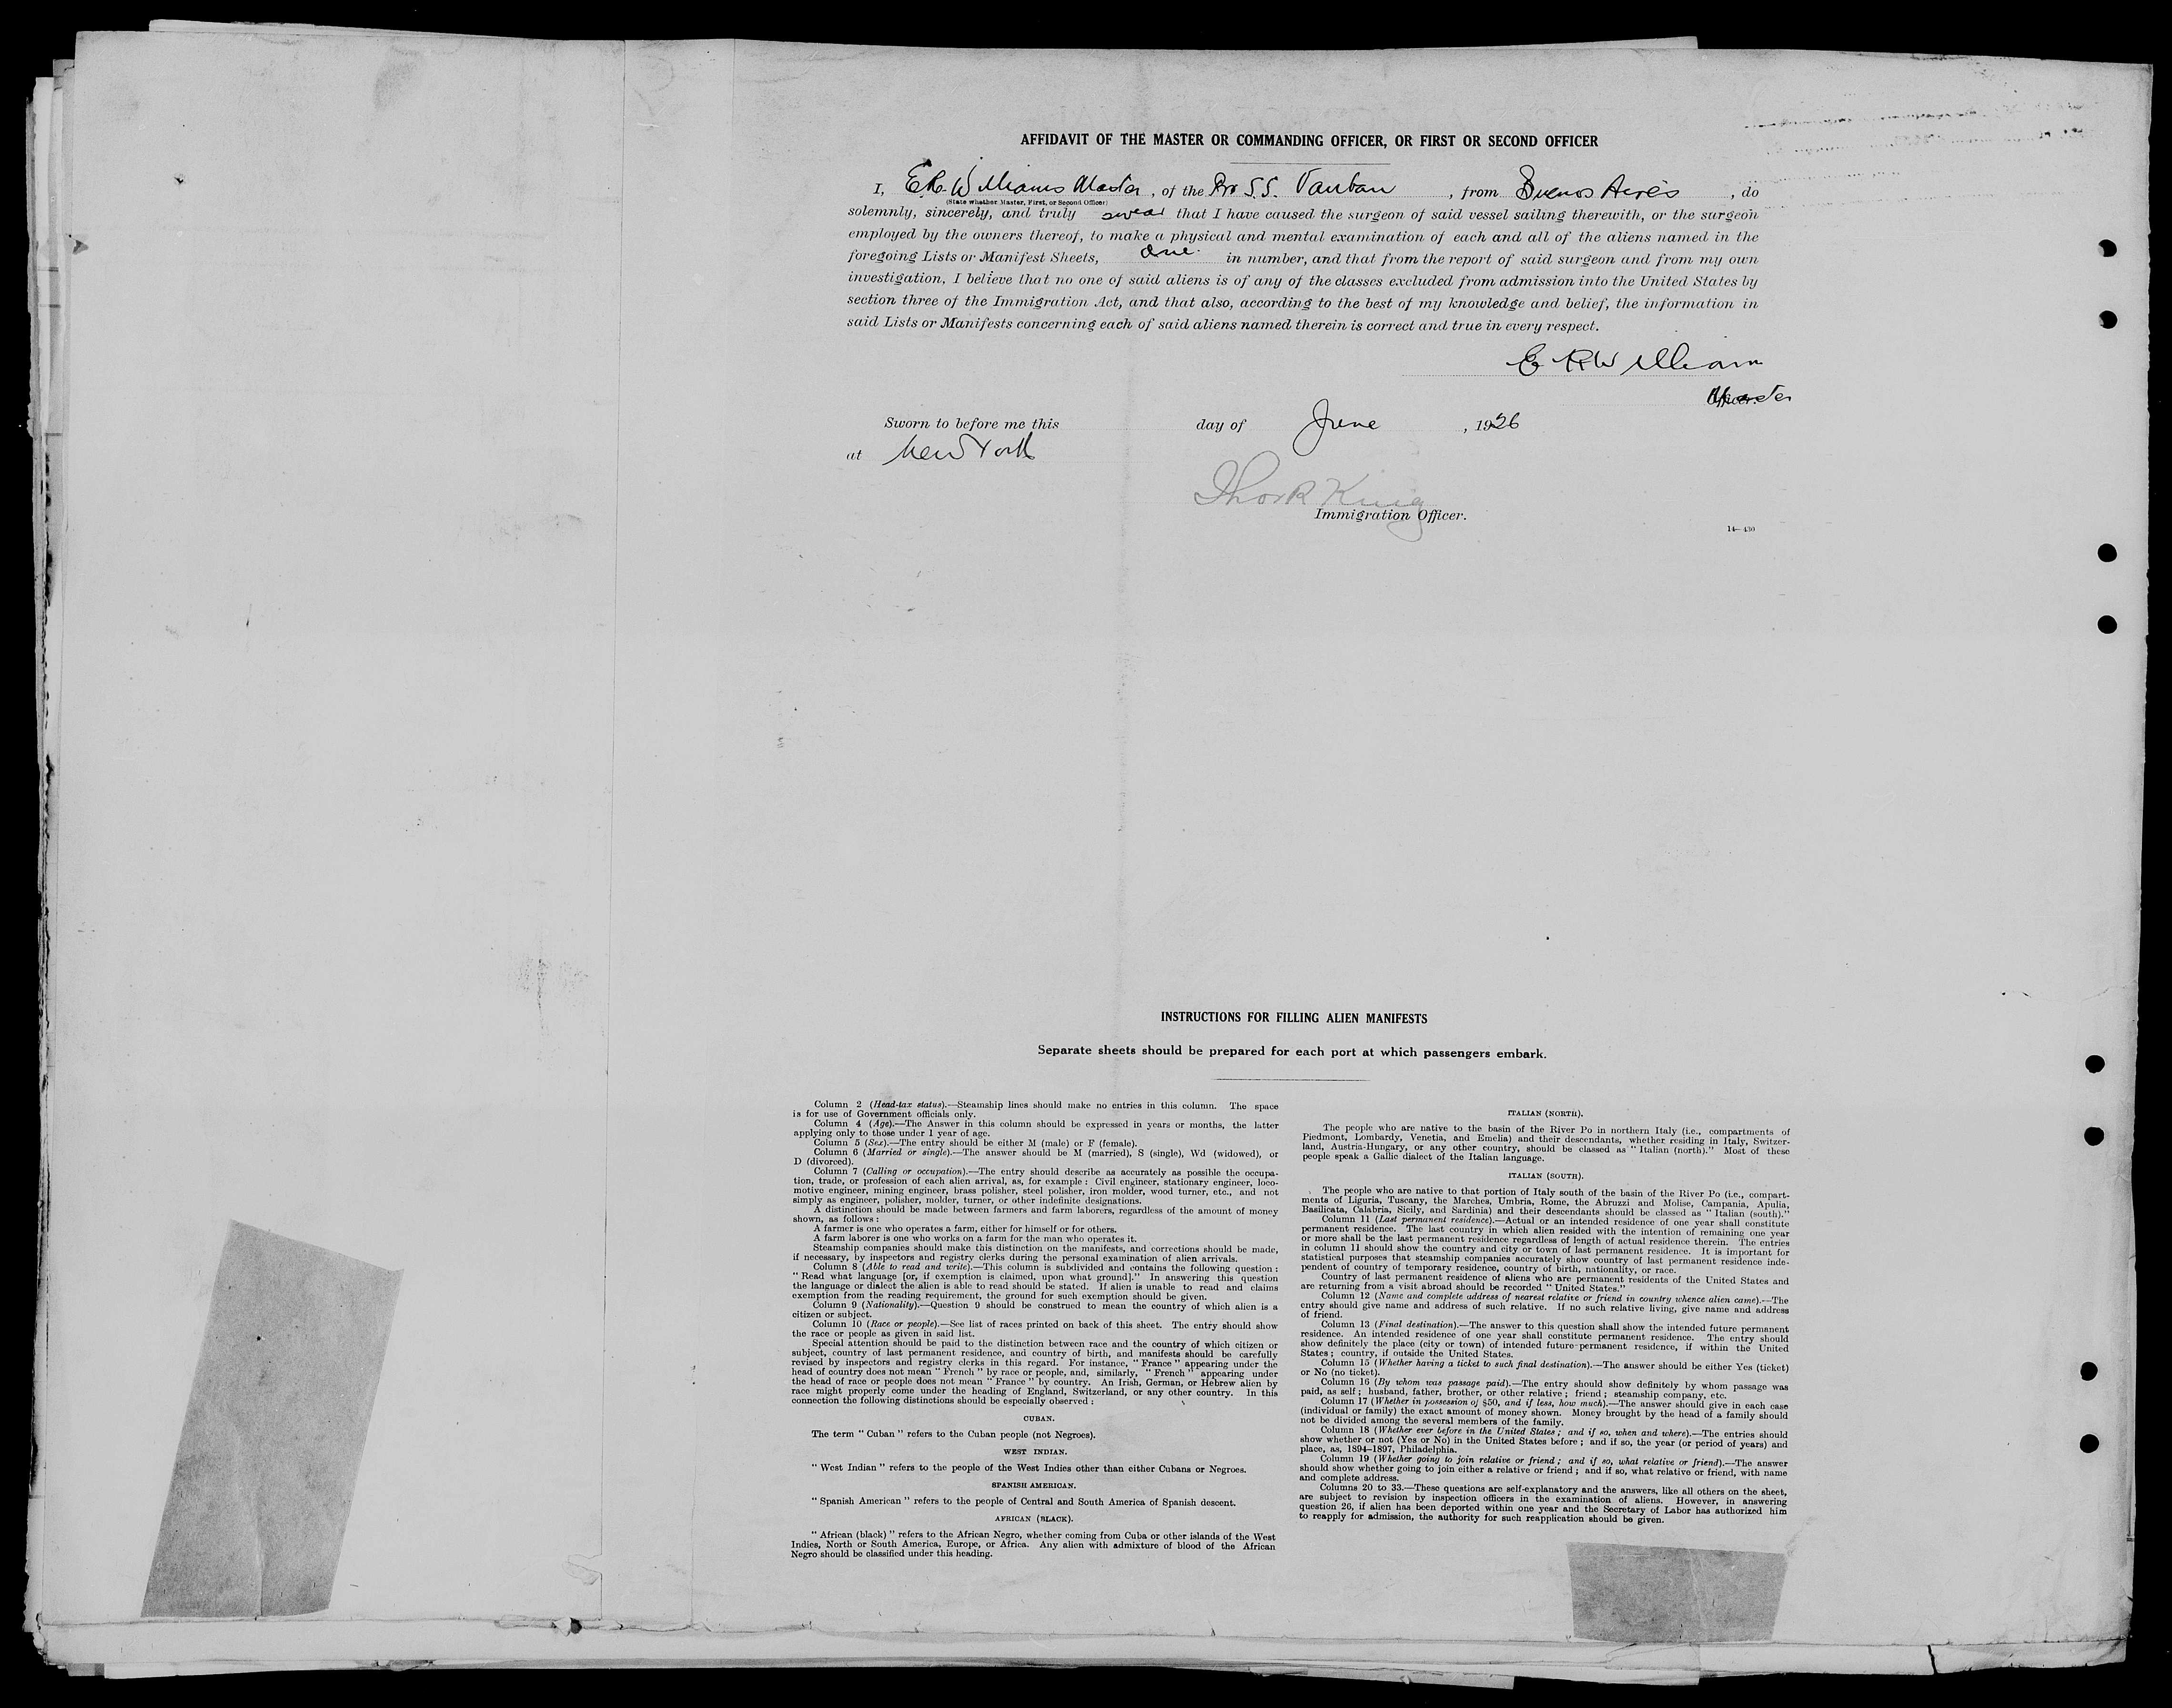 AFFIDAVIT OF THE MASTER OR COMMANDING OFFICER, OR FIRST OR SECOND OFFICER
I, E.R. Williams Master, of the Br S.S. Vauban, from Buenos Aires, do
(State whether Master, First, or Second Officer)
solemnly, sincerely, and truly swear that I have caused the surgeon of said vessel sailing therewith, or the surgeon
employed by the owners thereof, to make a physical and mental examination of each and all of the aliens named in the
foregoing Lists or Manifest Sheets, one in number, and that from the report of said surgeon and from my own
investigation, I believe that no one of said aliens is of any of the classes excluded from admission into the United States by
section three of the Immigration Act, and that also, according to the best of my knowledge and belief, the information in
said Lists or Manifests concerning each of said aliens named therein is correct and true in every respect.
E R William
Master
Officer.
Sworn to before me this day of June, 1926
at New York
Thos R King
Immigration Officer.
14—430
INSTRUCTIONS FOR FILLING ALIEN MANIFESTS
Separate sheets should be prepared for each port at which passengers embark.
Column 2 (Head-tax status).—Steamship lines should make no entries in this column. The space
is for use of Government officials only.
Column 4 (Age).—The Answer in this column should be expressed in years or months, the latter
applying only to those under 1 year of age.
Column 5 (Sex).—The entry should be either M (male) or F (female).
Column 6 (Married or single).—The answer should be M (married), S (single), Wd (widowed), or
D (divorced).
Column 7 (Calling or occupation).—The entry should describe as accurately as possible the occupa-
tion, trade, or profession of each alien arrival, as, for example: Civil engineer, stationary engineer, loco-
motive engineer, mining engineer, brass polisher, steel polisher, iron molder, wood turner, etc., and not
simply as engineer, polisher, molder, turner, or other indefinite designations.
A distinction should be made between farmers and farm laborers, regardless of the amount of money
shown, as follows:
A farmer is one who operates a farm, either for himself or for others.
A farm laborer is one who works on a farm for the man who operates it.
Steamship companies should make this distinction on the manifests, and corrections should be made,
if necessary, by inspectors and registry clerks during the personal examination of alien arrivals.
Column 8 (Able to read and write).—This column is subdivided and contains the following question:
"Read what language [or, if exemption is claimed, upon what ground]." In answering this question
the language or dialect the alien is able to read should be stated. If alien is unable to read and claims
exemption from the reading requirement, the ground for such exemption should be given.
Column 9 (Nationality).—Question 9 should be construed to mean the country of which alien is a
citizen or subject.
Column 10 (Race or people).—See list of races printed on back of this sheet. The entry should show
the race or people as given in said list.
Special attention should be paid to the distinction between race and the country of which citizen or
subject, country of last permanent residence, and country of birth, and manifests should be carefully
revised by inspectors and registry clerks in this regard. For instance, "France" appearing under the
head of country does not mean "French" by race or people, and, similarly, "French" appearing under
the head of race or people does not mean "France" by country. An Irish, German, or Hebrew alien by
race might properly come under the heading of England, Switzerland, or any other country. In this
connection the following distinctions should be especially observed:
CUBAN.
The term "Cuban" refers to the Cuban people (not Negroes).
WEST INDIAN.
"West Indian" refers to the people of the West Indies other than either Cubans or Negroes.
SPANISH AMERICAN.
"Spanish American" refers to the people of Central and South America of Spanish descent.
AFRICAN (BLACK).
"African (black)" refers to the African Negro, whether coming from Cuba or other islands of the West
Indies, North or South America, Europe, or Africa. Any alien with admixture of blood of the African
Negro should be classified under this heading.
ITALIAN (NORTH).
The people who are native to the basin of the River Po in northern Italy (i.e., compartments of
Piedmont, Lombardy, Venetia, and Emelia) and their descendants, whether residing in Italy, Switzer-
land, Austria-Hungary, or any other country, should be classed as "Italian (north)." Most of these
people speak a Gallic dialect of the Italian language.
ITALIAN (SOUTH).
The people who are native to that portion of Italy south of the basin of the River Po (i.e., compart-
ments of Liguria, Tuscany, the Marches, Umbria, Rome, the Abruzzi and Molise, Campania, Apulia,
Basilicata, Calabria, Sicily, and Sardinia) and their descendants should be classed as "Italian (south)."
Column 11 (Last permanent residence).—Actual or an intended residence of one year shall constitute
permanent residence. The last country in which alien resided with the intention of remaining one year
or more shall be the last permanent residence regardless of length of actual residence therein. The entries
in column 11 should show the country and city or town of last permanent residence. It is important for
statistical purposes that steamship companies accurately show country of last permanent residence inde-
pendent of country of temporary residence, country of birth, nationality, or race.
Country of last permanent residence of aliens who are permanent residents of the United States and
are returning from a visit abroad should be recorded "United States."
Column 12 (Name and complete address of nearest relative or friend in country whence alien came).—The
entry should give name and address of such relative. If no such relative living, give name and address
of friend.
Column 13 (Final destination).—The answer to this question shall show the intended future permanent
residence. An intended residence of one year shall constitute permanent residence. The entry should
show definitely the place (city or town) of intended future permanent residence, if within the United
States; country, if outside the United States.
Column 15 (Whether having a ticket to such final destination).—The answer should be either Yes (ticket)
or No (no ticket).
Column 16 (By whom was passage paid).—The entry should show definitely by whom passage was
paid, as self; husband, father, brother, or other relative; friend; steamship company, etc.
Column 17 (Whether in possession of $50, and if less, how much).—The answer should give in each case
(individual or family) the exact amount of money shown. Money brought by the head of a family should
not be divided among the several members of the family.
Column 18 (Whether ever before in the United States; and if so, when and where).—The entries should
show whether or not (Yes or No) in the United States before; and if so, the year (or period of years) and
place, as, 1894–1897, Philadelphia.
Column 19 (Whether going to join relative or friend; and if so, what relative or friend).—The answer
should show whether going to join either a relative or friend; and if so, what relative or friend, with name
and complete address.
Columns 20 to 33.—These questions are self-explanatory and the answers, like all others on the sheet,
are subject to revision by inspection officers in the examination of aliens. However, in answering
question 26, if alien has been deported within one year and the Secretary of Labor has authorized him
to reapply for admission, the authority for such reapplication should be given.